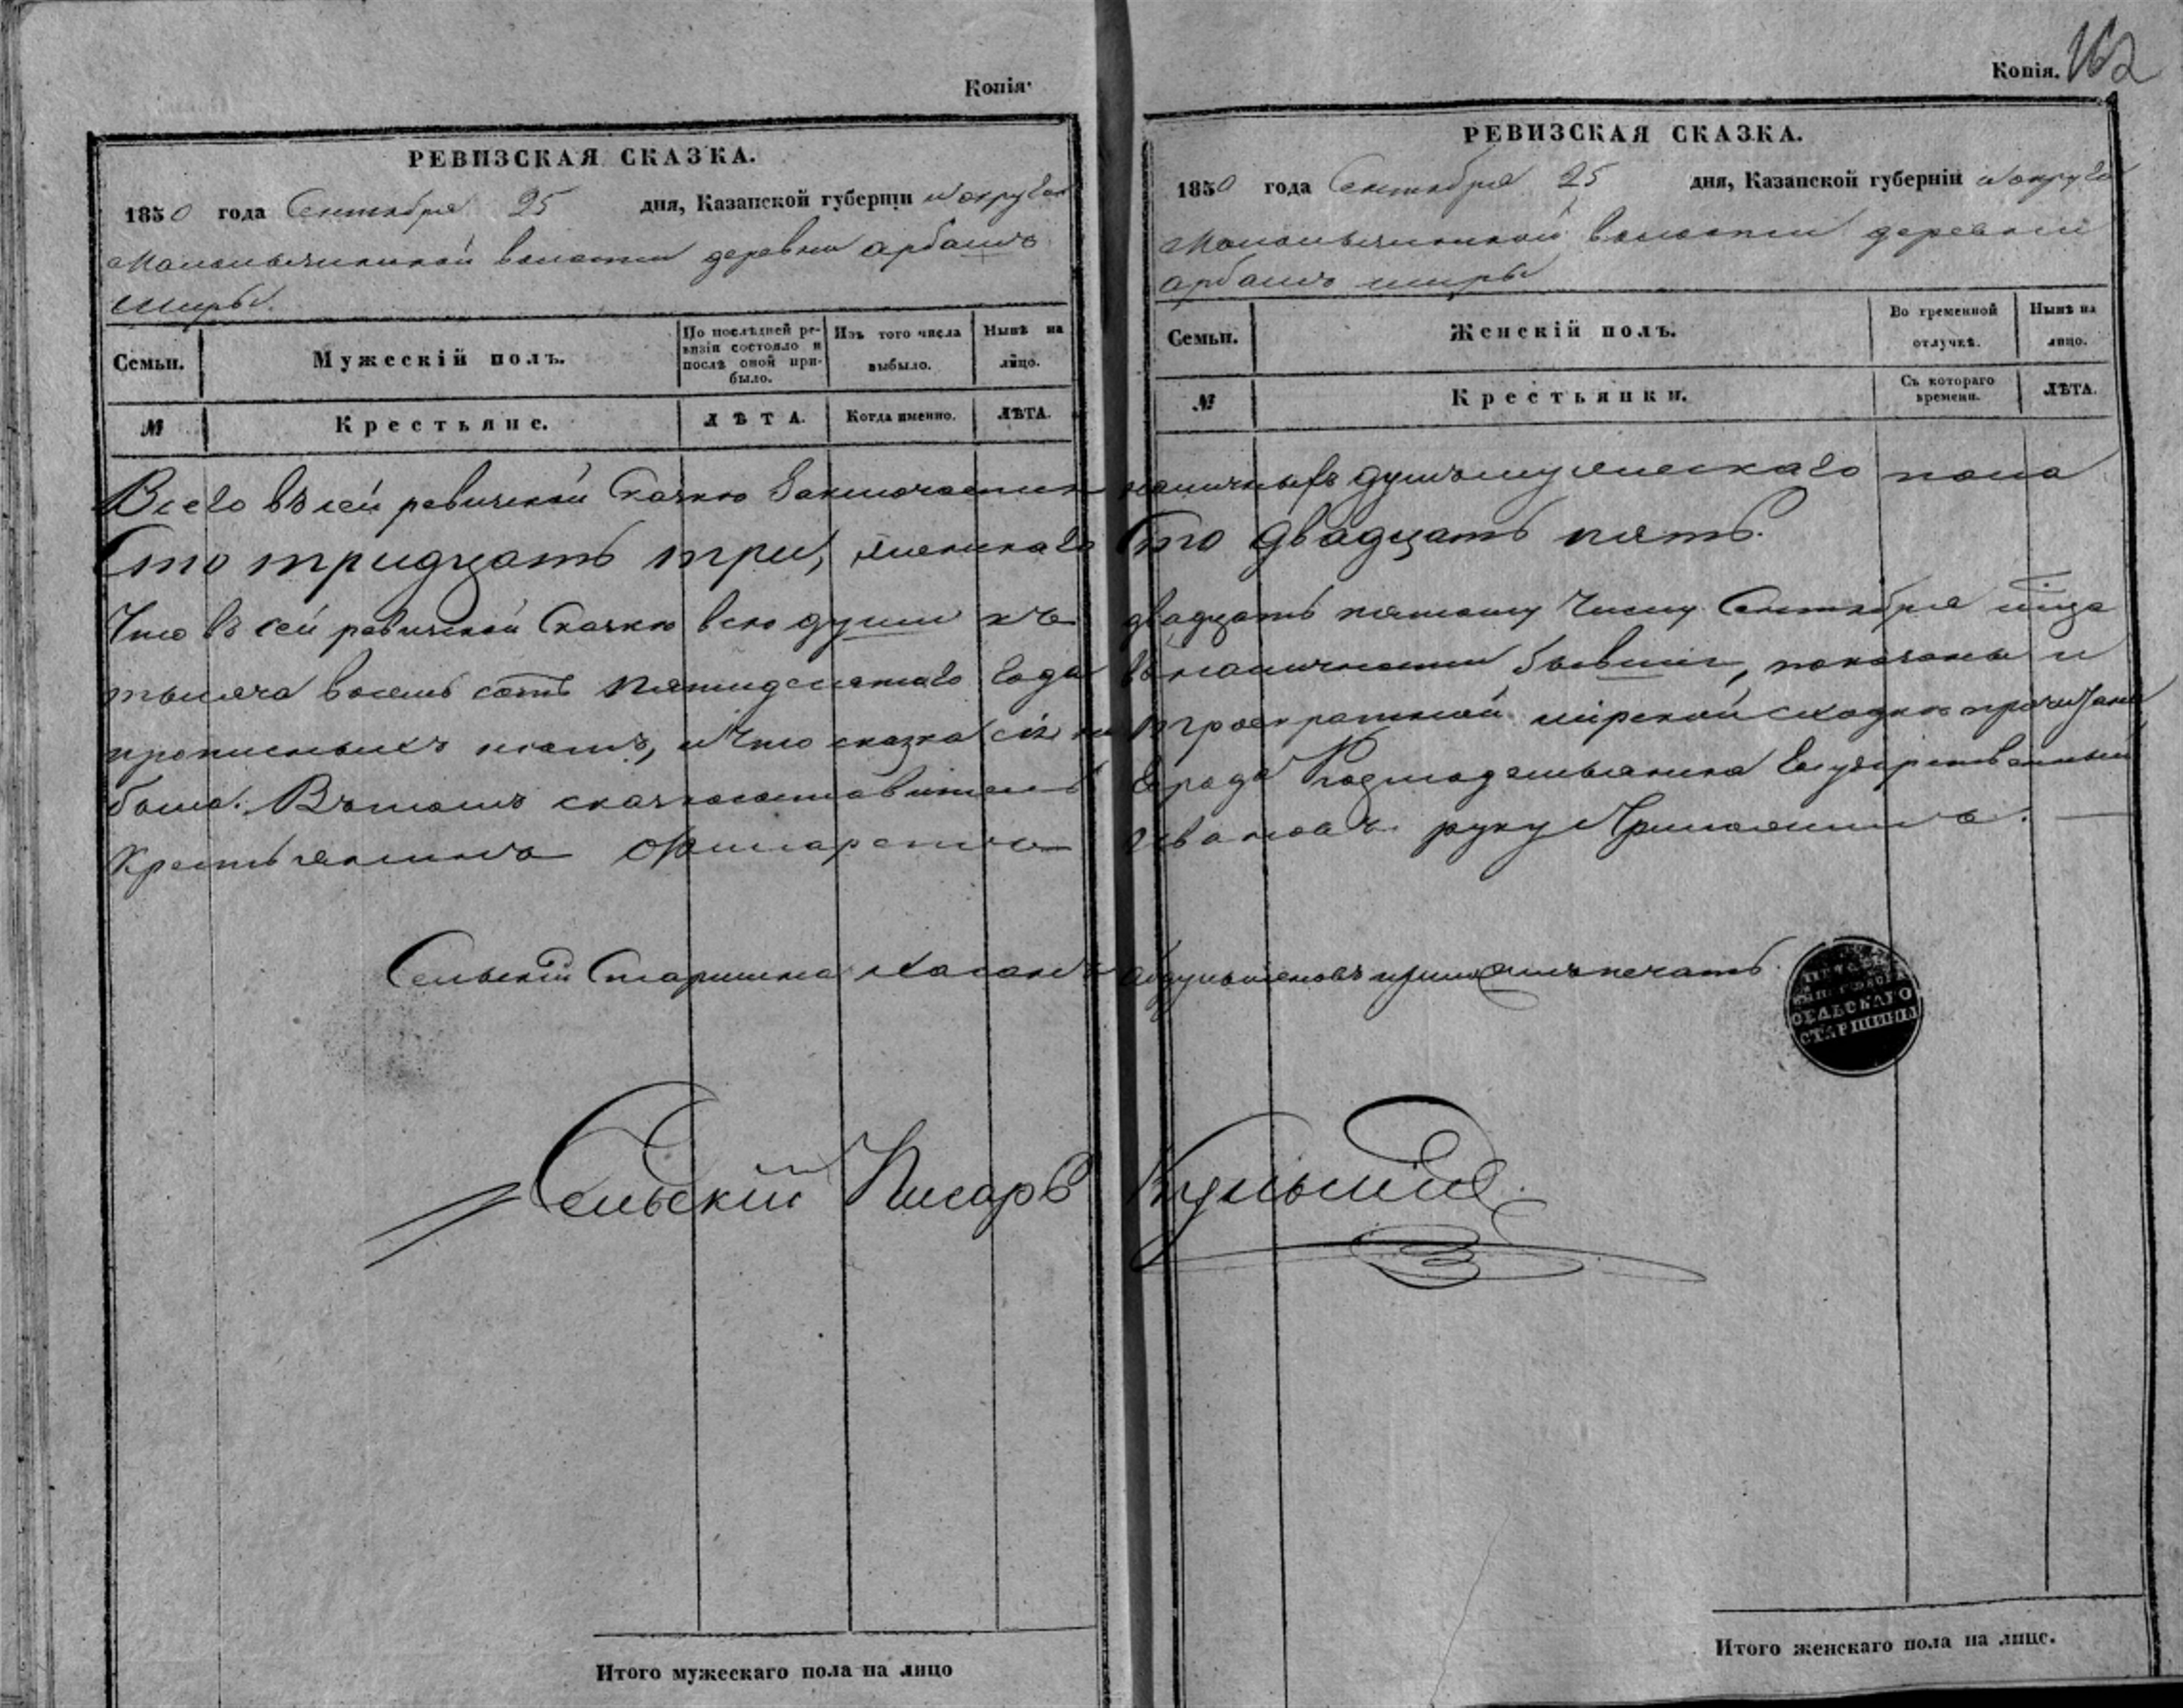 Копія.
РЕВИЗСКАЯ СКАЗКА.
1850 года Сентября 25 дня, Казанской губерніи и округа
волости деревни Арбашъ
Ширы.
Семьи.
Мужескій полъ.
По послѣдней ревизіи состояло и послѣ оной прибыло.
Изъ того числа выбыло.
Нынѣ на лицо.
№
Крестьяне.
ЛѢТА.
Когда именно.
ЛѢТА.
Копія. 162
РЕВИЗСКАЯ СКАЗКА.
1850 года Сентября 25 дня, Казанской губерніи и округа
волости деревни
Арбашъ ширы
Семьи.
Женскій полъ.
Во временной отлучкѣ.
Нынѣ на лицо.
№
Крестьянки.
Съ котораго времени.
ЛѢТА.
Всего въ сей ревизской Сказкѣ Заключается наличныхъ душъ мужескаго пола
Сто тридцать три, женскаго Сто двадцать пять.
Что въ сей ревизской Сказкѣ всѣ души къ двадцать пятому Числу Сентября мѣсяца
тысяча восемь сотъ пятидесятаго года въ наличности бывшіе, показаны и
прописныхъ нѣтъ, и Что сказка сія на троекратной мірской сходкѣ прочитана
была. Въ томъ Града Козмодемьянска Государственный
Крестьянинъ Филаретъ Ивановъ руку Приложилъ.
Сельскій Старшина Хасанъ приложилъ печать.
СЕЛЬСКАГО
СТАРШИНЫ
Сельскій Писарь
Итого мужескаго пола на лицо
Итого женскаго пола на лице.